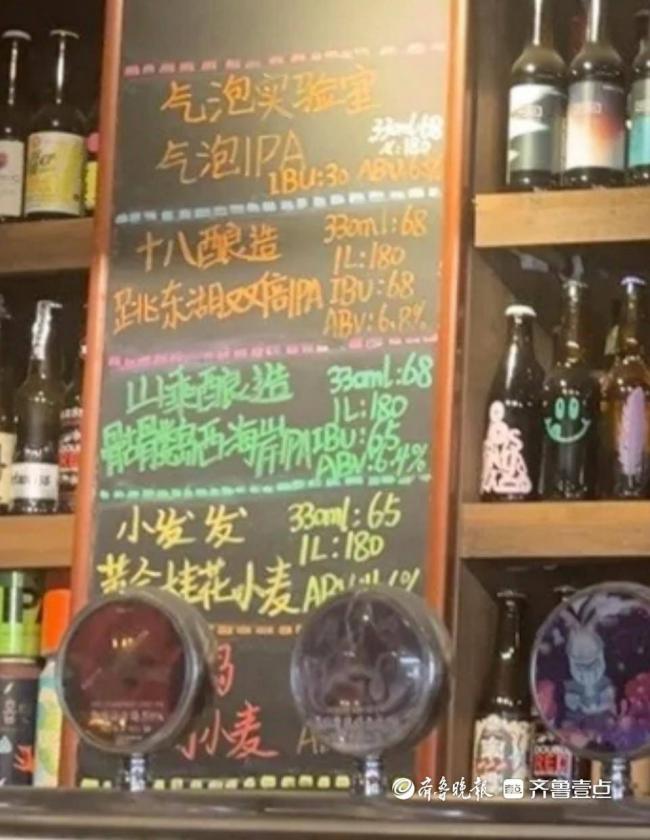 气泡实验室
33ml:68
气泡IPA
1L:180
IBU:30 ABV:6%
十八酿造 330ml:68
1L:180
跳东湖双倍IPA IBU:68
ABV:6.8%
山乘酿造 330ml:68
1L:180
骷髅岛西海岸IPA IBU:65
ABV:6.4%
小发发 330ml:65
1L:180
黄金桂花小麦 ABV
小麦
DOUBLE
RED
齐鲁晚报 齐鲁壹点